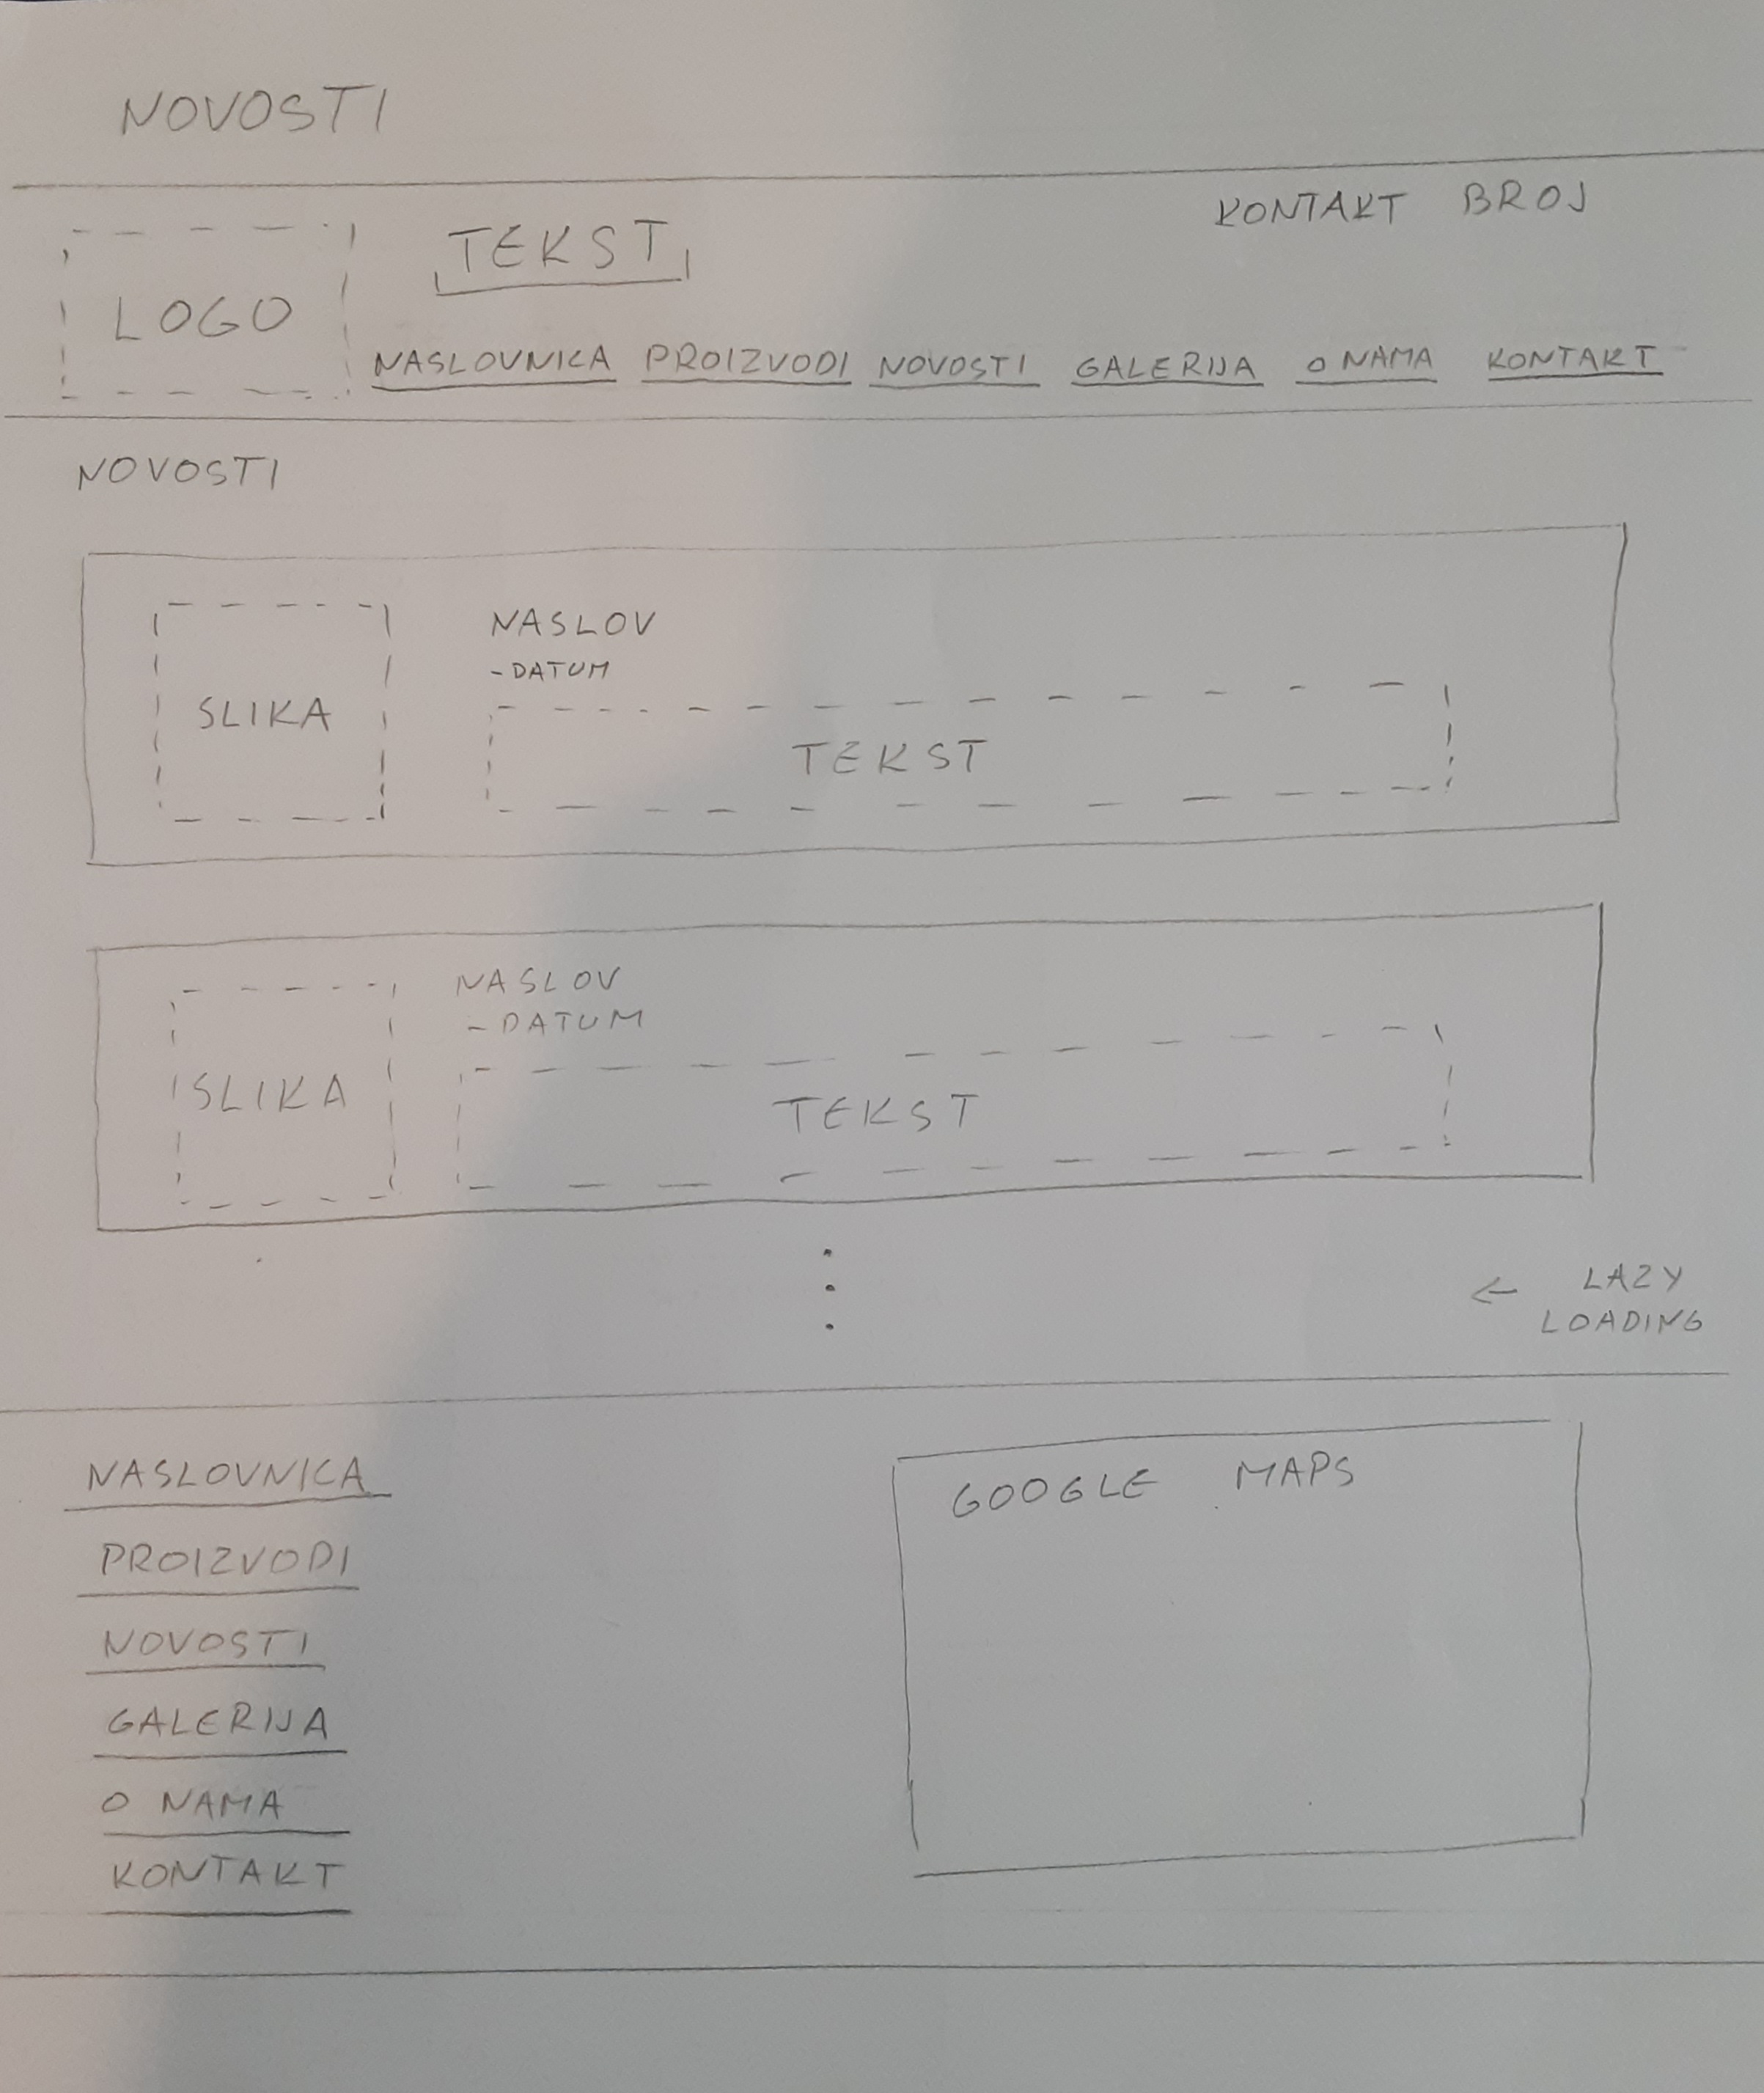 NOVOSTI
KONTAKT BROJ
TEKST
LOGO
NASLOVNICA PROIZVODI NOVOSTI GALERIJA O NAMA KONTAKT
NOVOSTI
NASLOV
-DATUM
SLIKA
TEKST
NASLOV
-DATUM
SLIKA
TEKST
← LAZY
LOADING
NASLOVNICA
PROIZVODI
NOVOSTI
GALERIJA
O NAMA
KONTAKT
GOOGLE MAPS